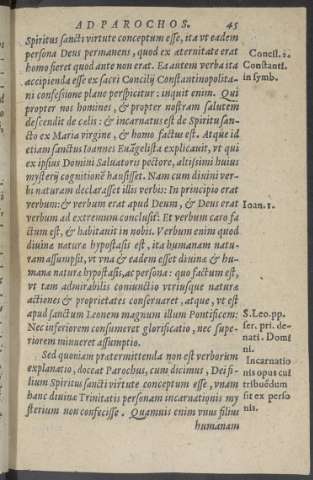 AD PAROCHOS. 45
Spiritus sancti virtute conceptum esse, ita vt eadem
persona Deus permanens, quod ex æternitate erat
homo fieret quod ante non erat. Ea autem verba ita
accipienda esse ex sacri Concilij Constantinopolita-
ni confessione plane perspicitur: inquit enim. Qui
propter nos homines, & propter nostram salutem
descendit de celis: & incarnatus est de Spiritu san-
cto ex Maria virgine, & homo factus est. Atque id
etiam sanctus Ioannes Euāgelista explicauit, vt qui
ex ipsius Domini Saluatoris pectore, altissimi huius
mysterij cognitionē hausisset. Nam cum diuini ver-
bi naturam declarasset illis verbis: In principio erat
verbum: & verbum erat apud Deum, & Deus erat
verbum ad extremum conclusit: Et verbum caro fa-
ctum est, & habitauit in nobis. Verbum enim quod
diuinæ naturæ hypostasis est, ita humanam natu-
ram assumpsit, vt vna & eadem esset diuinæ & hu-
manæ naturæ hypostasis, ac persona: quo factum est,
vt tam admirabilis coniunctio vtriusque naturæ
actiones & proprietates conseruaret, atque, vt est
apud sanctum Leonem magnum illum Pontificem:
Nec inferiorem consumeret glorificatio, nec supe-
riorem minueret assumptio.
Sed quoniam prætermittenda non est verborum
explanatio, doceat Parochus, cum dicimus, Dei fi-
lium Spiritus sancti virtute conceptum esse, vnam
hanc diuinæ Trinitatis personam incarnationis my
sterium non confecisse. Quamuis enim vnus filius
humanam
Concil. 2.
Constanti.
in symb.
Ioan. 1.
S. Leo. pp.
ser. pri. de
nati. Domi
ni.
Incarnatio
nis opus cui
tribuēdum
sit ex perso
nis.